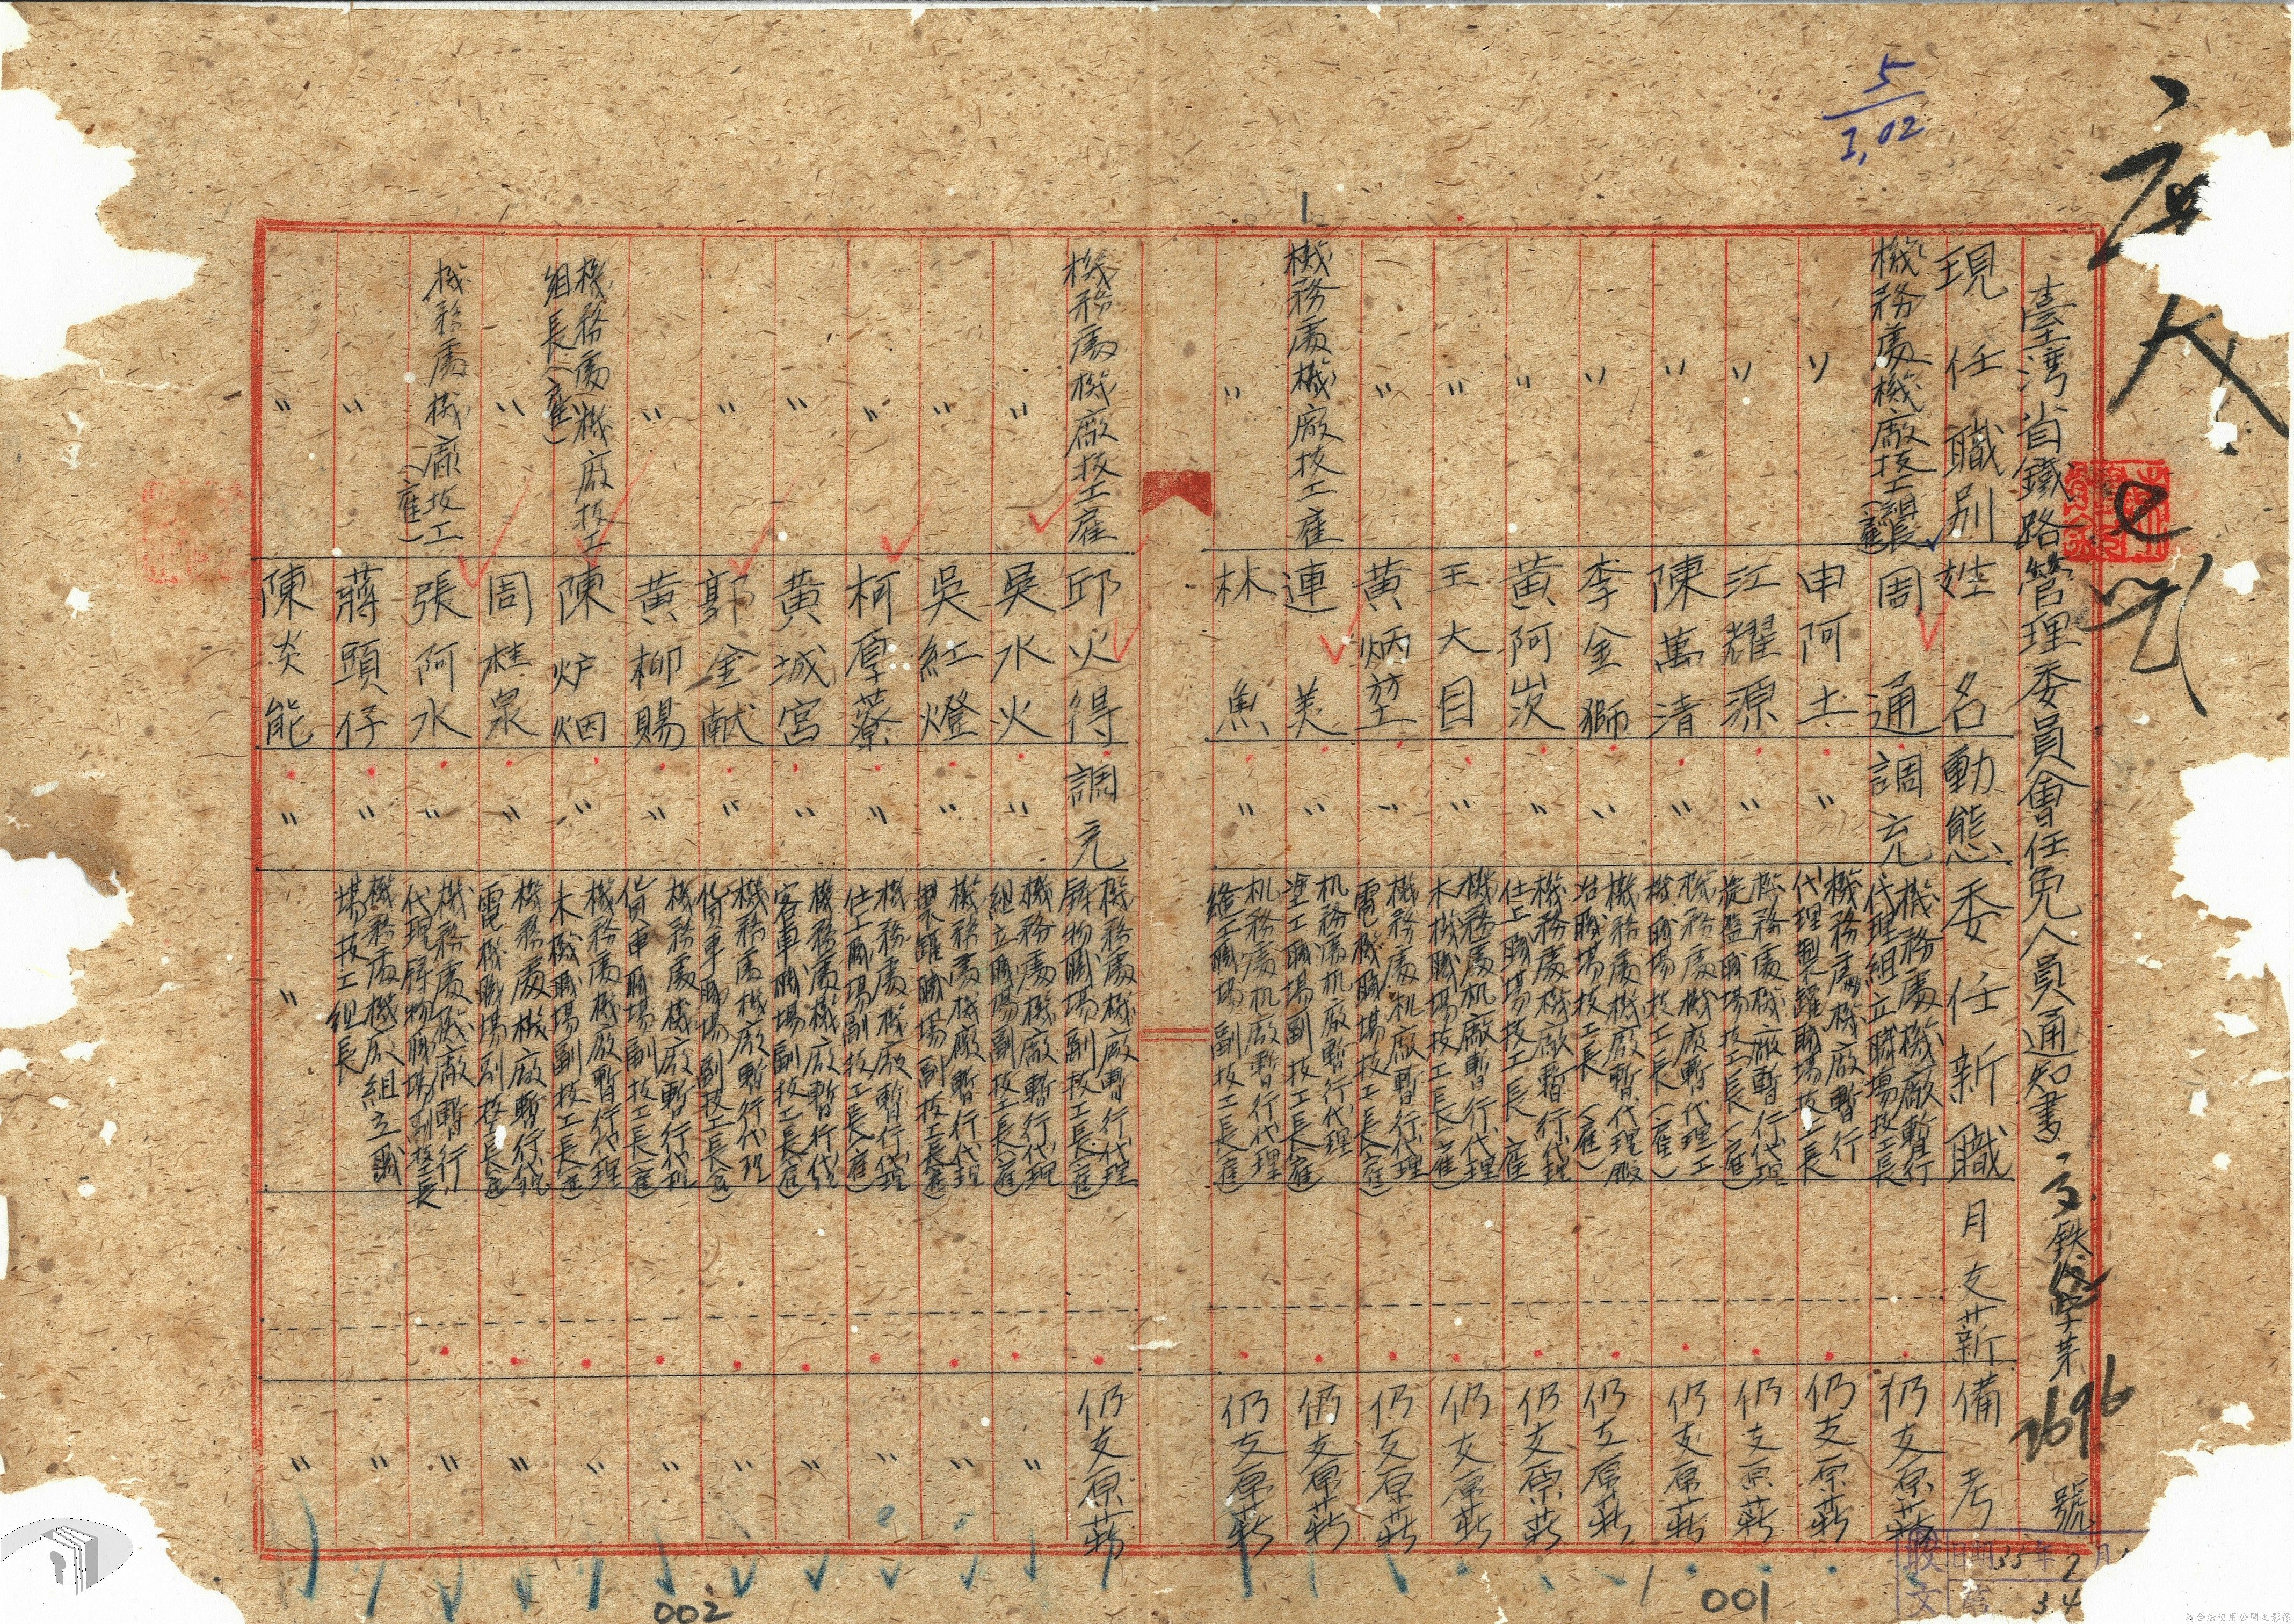 5
1,02
臺灣省鐵路管理委員會任免人員通知書
鉄
字第2696號
現任職別 姓名 動態 委任新職 月支薪 備考
機務處機廠技工組長(雇) 周通 調充 機務處機廠暫行代理組立職場技工長 仍支原薪
〃 申阿土 〃 機務處機廠暫行代理製罐職場技工長 仍支原薪
〃 江耀源 〃 機務處機廠暫行代理旋盤職場技工長(雇) 仍支原薪
〃 陳萬清 〃 機務處機廠暫代理工機職場技工長(雇) 仍支原薪
〃 李金獅 〃 機務處機廠暫代理職場技工長(雇) 仍支原薪
〃 黃阿炭 〃 機務處機廠暫行代理仕上職場技工長 雇 仍支原薪
〃 王大目 〃 機務處机廠暫行代理木機職場技工長(雇) 仍支原薪
〃 黃炳堃 〃 機務處机廠暫行代理電機職場技工長(雇) 仍支原薪
機務處機廠技工雇 連美 〃 机務處机廠暫行代理塗工職場副技工長(雇) 仍支原薪
〃 林魚 〃 机務處机廠暫行代理縫工職場副技工長(雇) 仍支原薪
機務處機廠技工雇 邱火得 調充 機務處機廠暫行代理鑄物職場副技工長(雇) 仍支原薪
〃 吳水火 〃 機務處機廠暫行代理組立職場副技工長(雇) 〃
〃 吳紅燈 〃 機務處機廠暫行代理製罐職場副技工長(雇) 〃
〃 柯厚藔 〃 機務處機廠暫行代理仕上職場副技工長(雇) 〃
〃 黃城宮 〃 機務處機廠暫行代理客車職場副技工長(雇) 〃
〃 郭金献 〃 機務處機廠暫行代理貨車職場副技工長(雇) 〃
〃 黃柳賜 〃 機務處機廠暫行代理貨車職場副技工長(雇) 〃
機務處機廠技工組長(雇) 陳炉烟 〃 機務處機廠暫行代理木機職場副技工長(雇) 〃
〃 周桂泉 〃 機務處機廠暫行代理電機職場副技工長(雇) 〃
機務處機廠技工(雇) 張阿水 〃 機務處機廠暫行代理鑄物職場副技工長 〃
〃 蔣頭仔 〃 機務處機廠組立職場技工組長 〃
〃 陳炎能 〃 〃 〃
收文
日期35年7月
34
001
002
請合法使用公開之影像